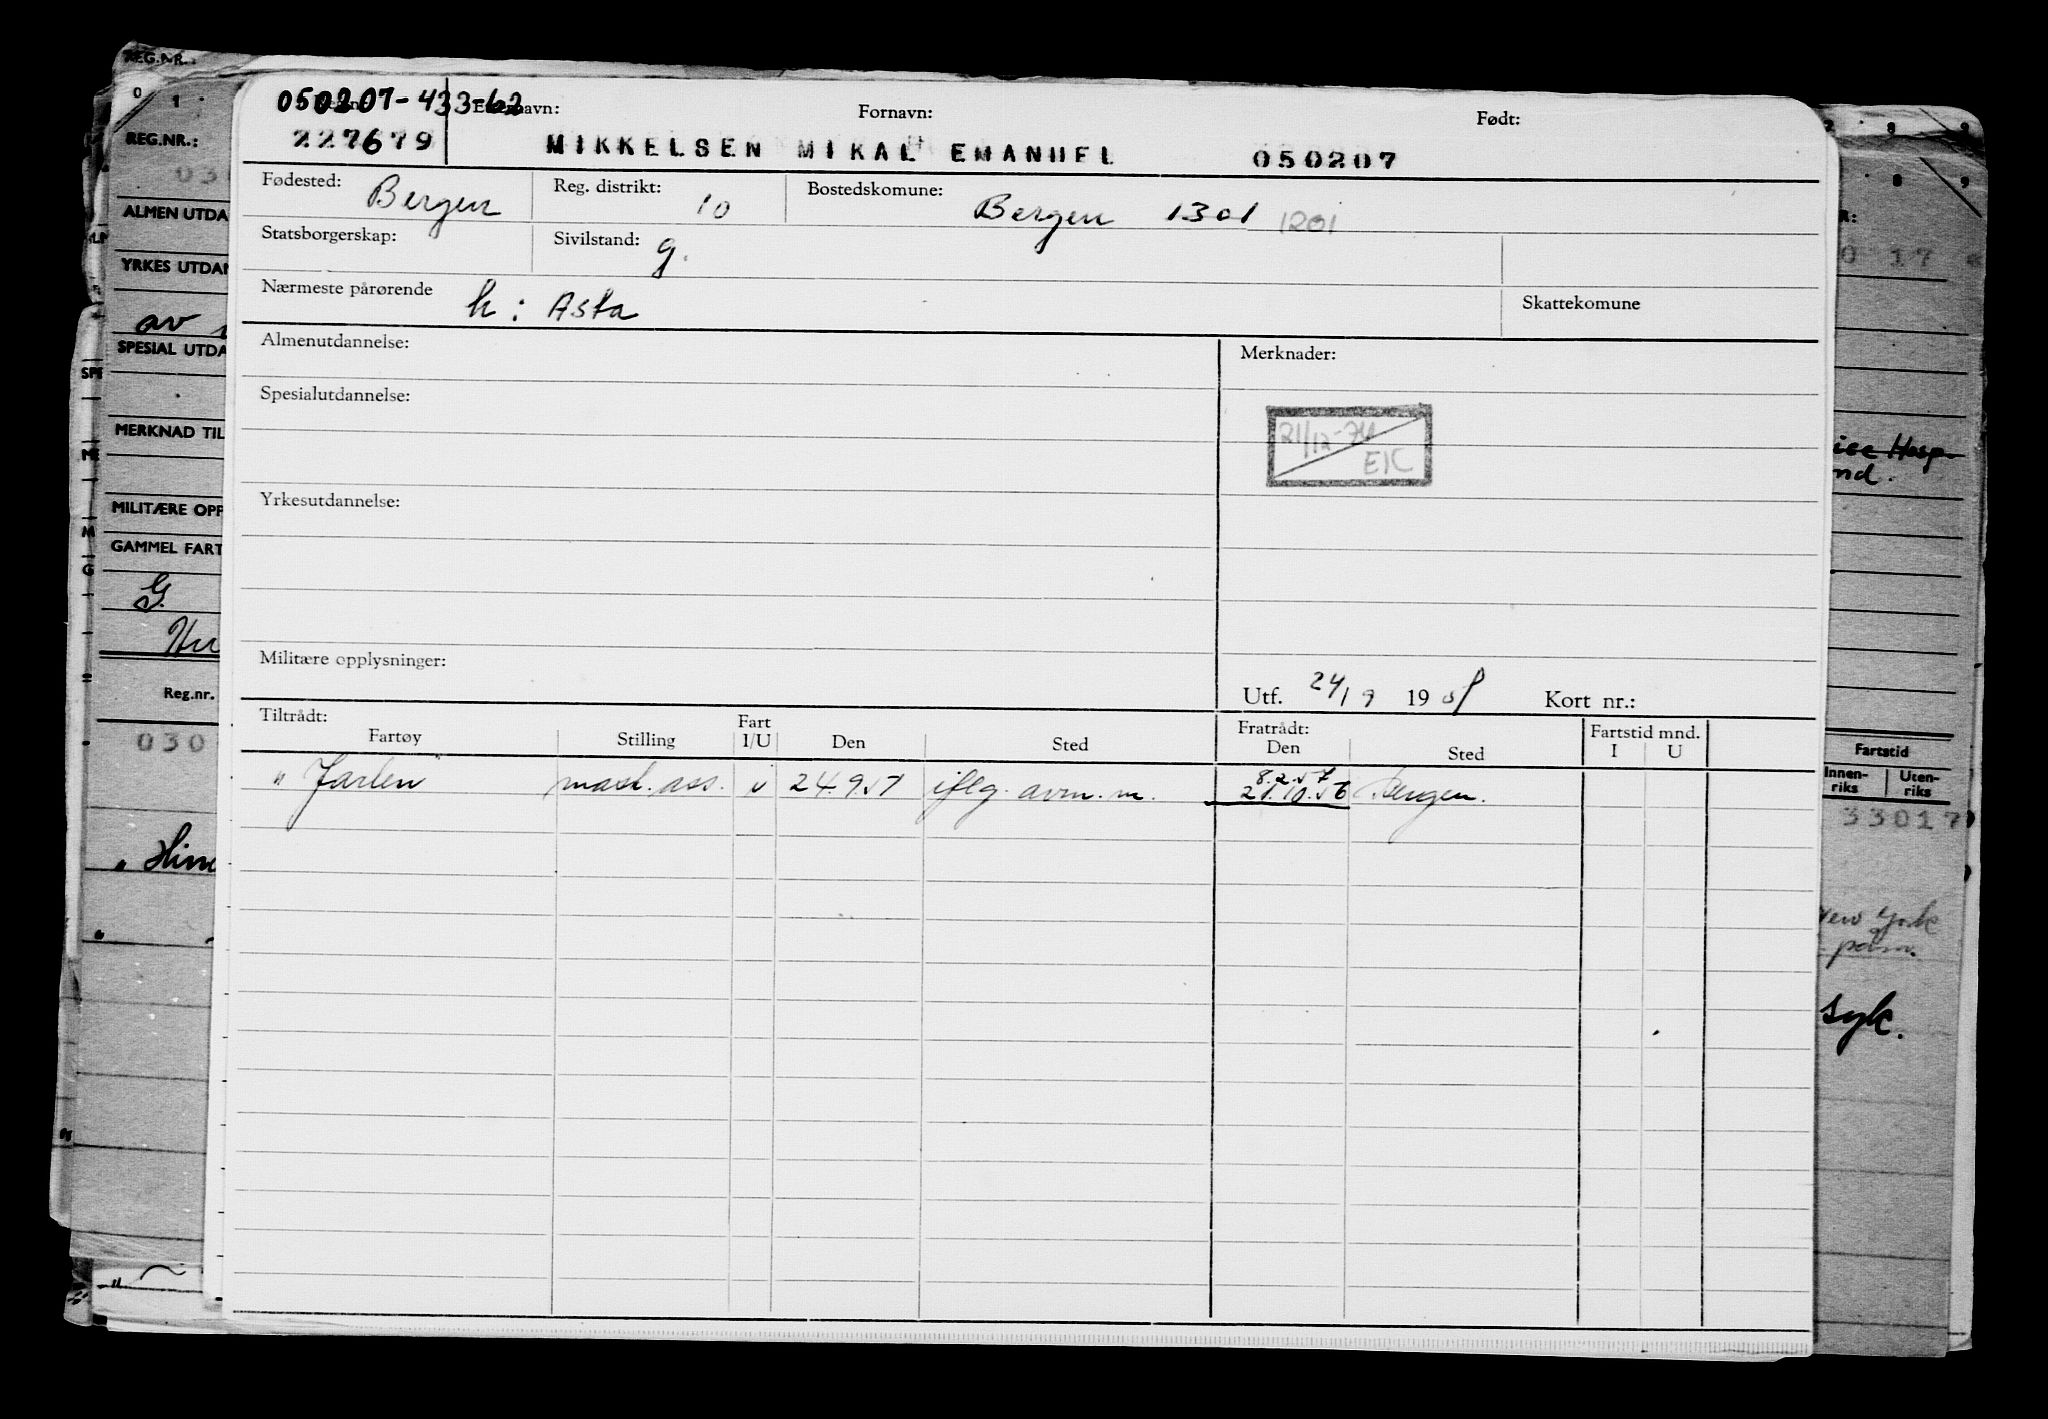 REG.NR.:
0 1
050207-433-62
Etternavn: Fornavn: Født:
REG.NR.:
227679 MIKKELSEN MIKAL EMANUEL 050207
Fødested: Bergen Reg. distrikt: 10 Bostedskomune: Bergen 1301 1201
ALMEN UTDA
Statsborgerskap: Sivilstand: g.
YRKES UTDAN
Nærmeste pårørende h: Asta Skattekomune
av
SPESIAL UTDA
Almenutdannelse: Merknader:
Spesialutdannelse:
21/12-74
EK
MERKNAD TIL
Yrkesutdannelse:
MILITÆRE OPP
GAMMEL FART
G.
Militære opplysninger:
Utf. 24/9 19 Kort nr.:
Reg.nr.
Tiltrådt: Fratrådt: Fartstid mnd.
Fartøy Stilling Fart I/U Den Sted Den Sted I U
030
"Jarlen" mask.ass. 24.9.57 iflg. avm. m. 8.2.57
21.10.56 Bergen.
Hosp.
nd.
Fartstid
Innen-riks Uten-riks
33017
New York
syk.